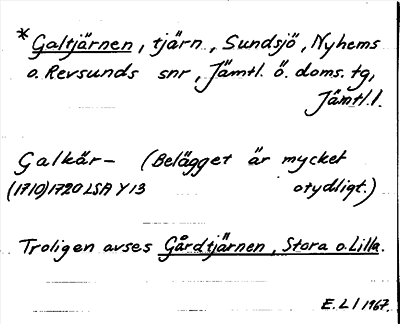 *Galtjärnen, tjärn, Sundsjö, Nyhems
o. Revsunds snr, Jämtl. ö. doms. tg,
Jämtl. l.
Galkär- (Belägget är mycket
(1710) 1720 LSA Y 13 otydligt.)
Troligen avses Gårdtjärnen, Stora o. Lilla.
E. L / 1967.